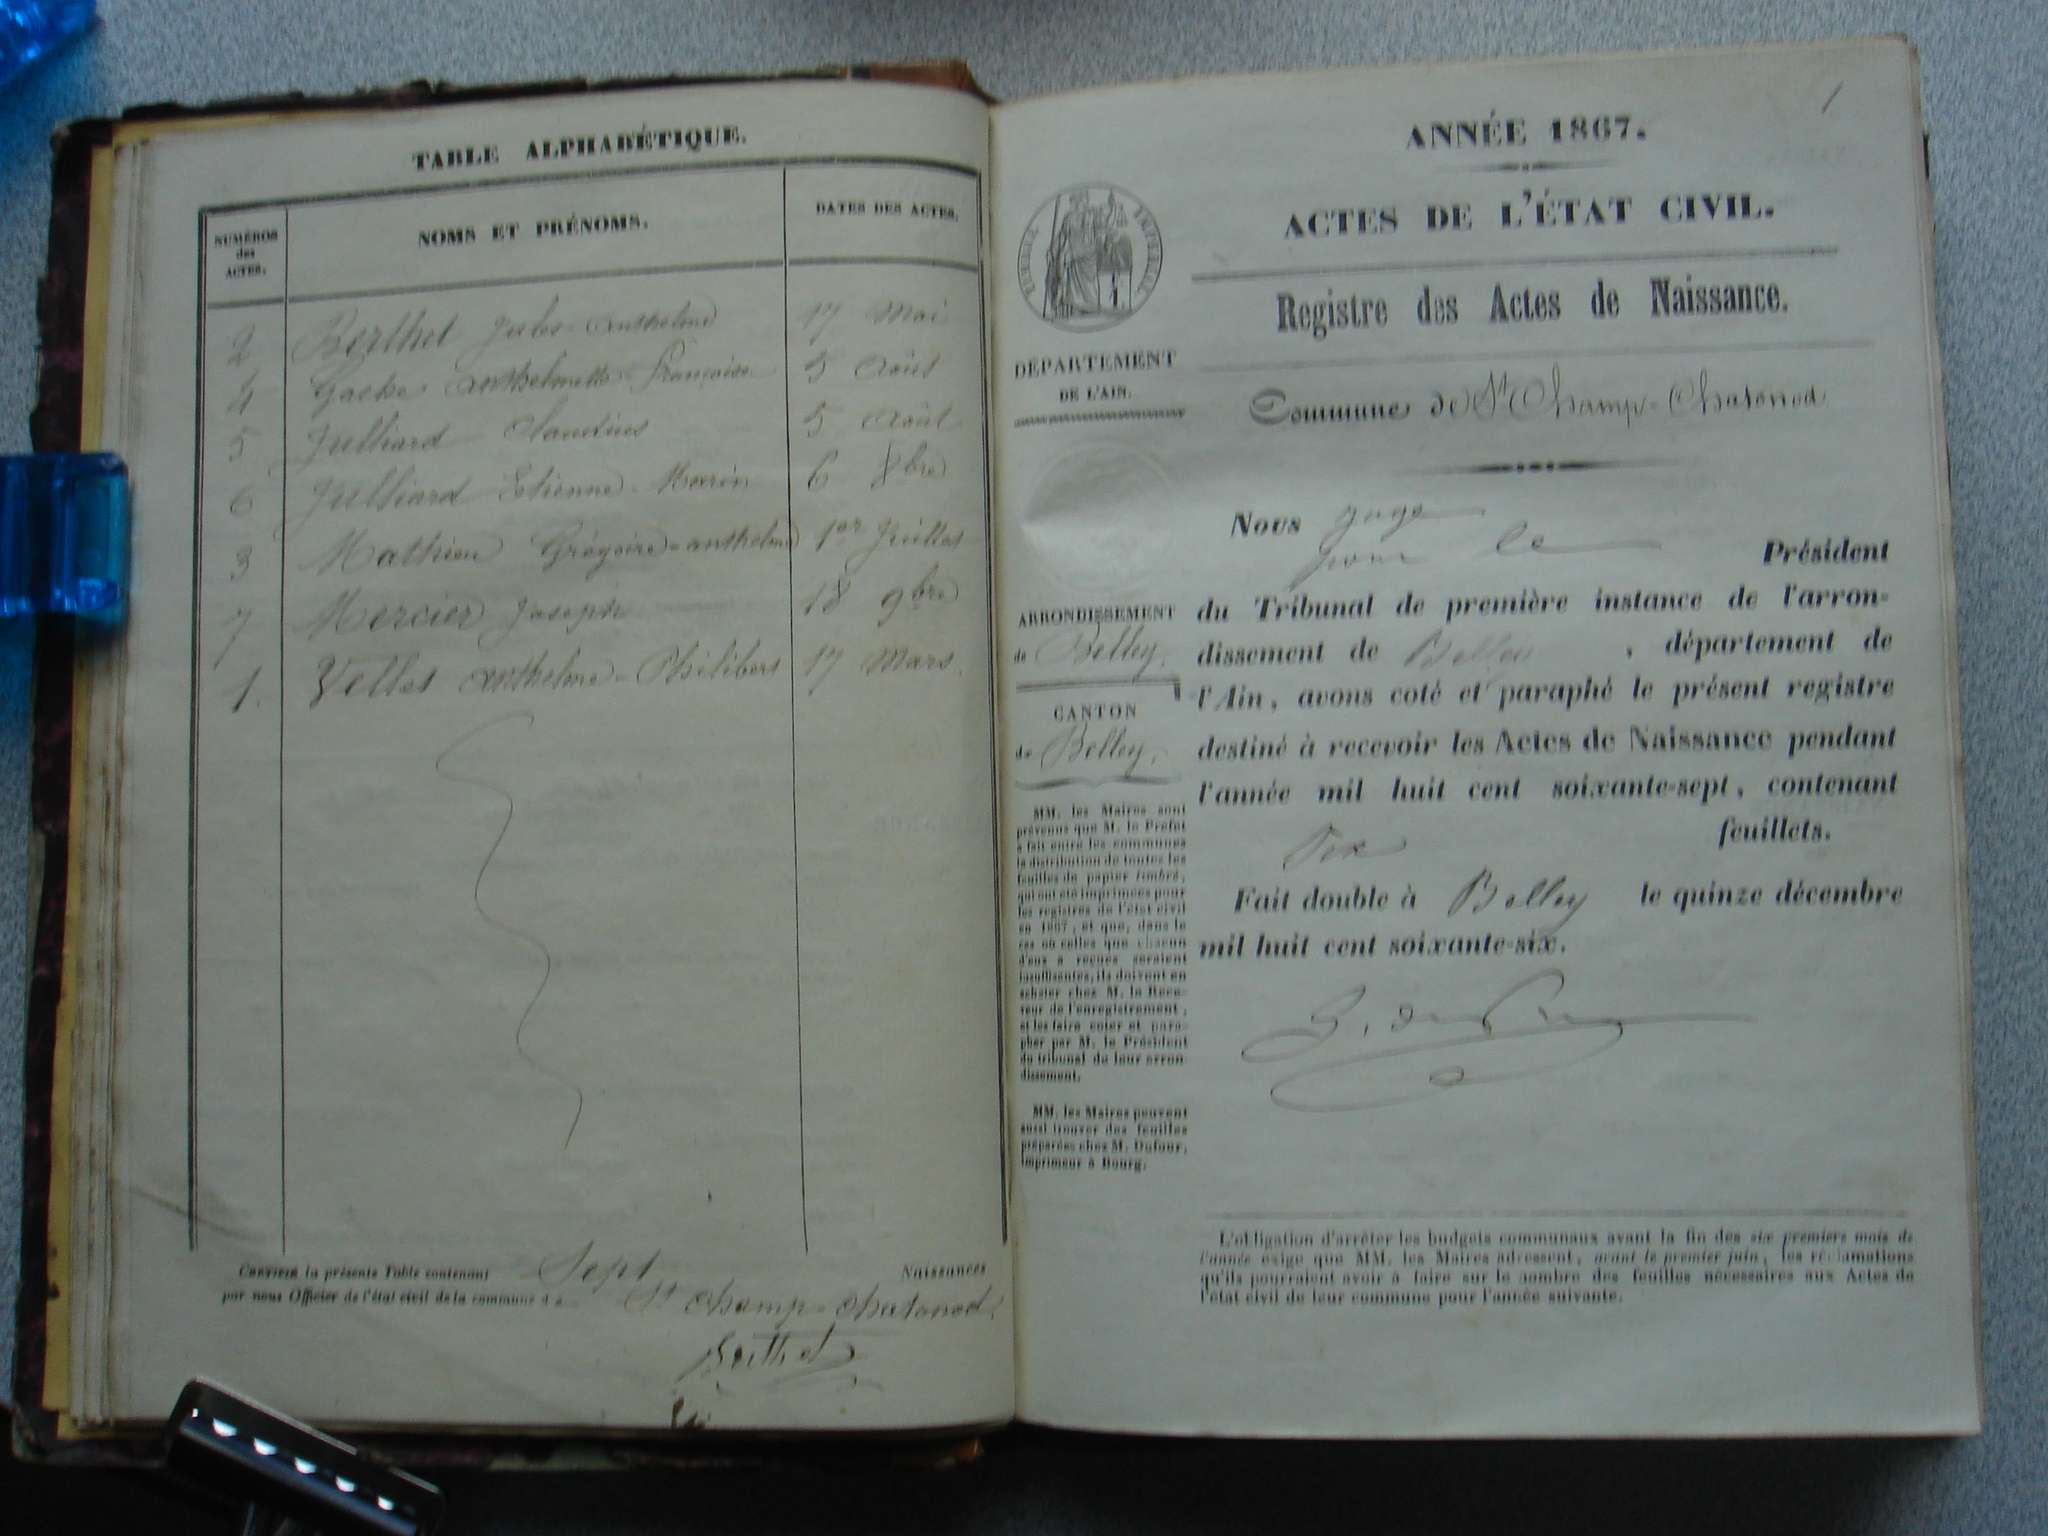 TABLE ALPHABÉTIQUE.
NUMÉROS
des
ACTES.
NOMS ET PRÉNOMS.
DATES DES ACTES.
2 Berthet Jules-anthelme 17 Mai
4 anthelmette-françoise 5 Août
5 Julliard Claudius 5 Août
6 Julliard Etienne-Marin 6 8bre
3 Mathieu Grégoire-anthelme 1er Juillet
7 Mercier Joseph 18 9bre
1. Vellet anthelme-Philibert 17 Mars.
CERTIFIÉ la présente Table contenant Sept Naissances
par nous Officier de l'état civil de la commune d e St Champ-Chatonod.
Berthet
1
ANNÉE 1867.
ACTES DE L'ÉTAT CIVIL.
Registre des Actes de Naissance.
Commune de St Champ-Chatonod
DÉPARTEMENT
DE L'AIN.
ARRONDISSEMENT
de Belley.
CANTON
de Belley.
MM. les Maires sont
prévenus que M. le Préfet
a fait entre les communes
la distribution de toutes les
feuilles de papier timbré,
qui ont été imprimées pour
les registres de l'état civil
en 1867, et que, dans le
cas où celles que chacun
d'eux a reçues seraient
insuffisantes, ils doivent en
acheter chez M. le Rece-
veur de l'enregistrement,
et les faire coter et para-
pher par M. le Président
du tribunal de leur arron-
dissement.
MM. les Maires peuvent
aussi trouver des feuilles
préparées chez M. Dufour,
imprimeur à Bourg.
Nous juge
pour le Président
du Tribunal de première instance de l'arron-
dissement de Belley , département de
l'Ain, avons coté et paraphé le présent registre
destiné à recevoir les Actes de Naissance pendant
l'année mil huit cent soixante-sept, contenant
Six feuillets.
Fait double à Belley le quinze décembre
mil huit cent soixante-six.
L'obligation d'arrêter les budgets communaux avant la fin des six premiers mois de
l'année exige que MM. les Maires adressent, avant le premier juin, les réclamations
qu'ils pourraient avoir à faire sur le nombre des feuilles nécessaires aux Actes de
l'état civil de leur commune pour l'année suivante.